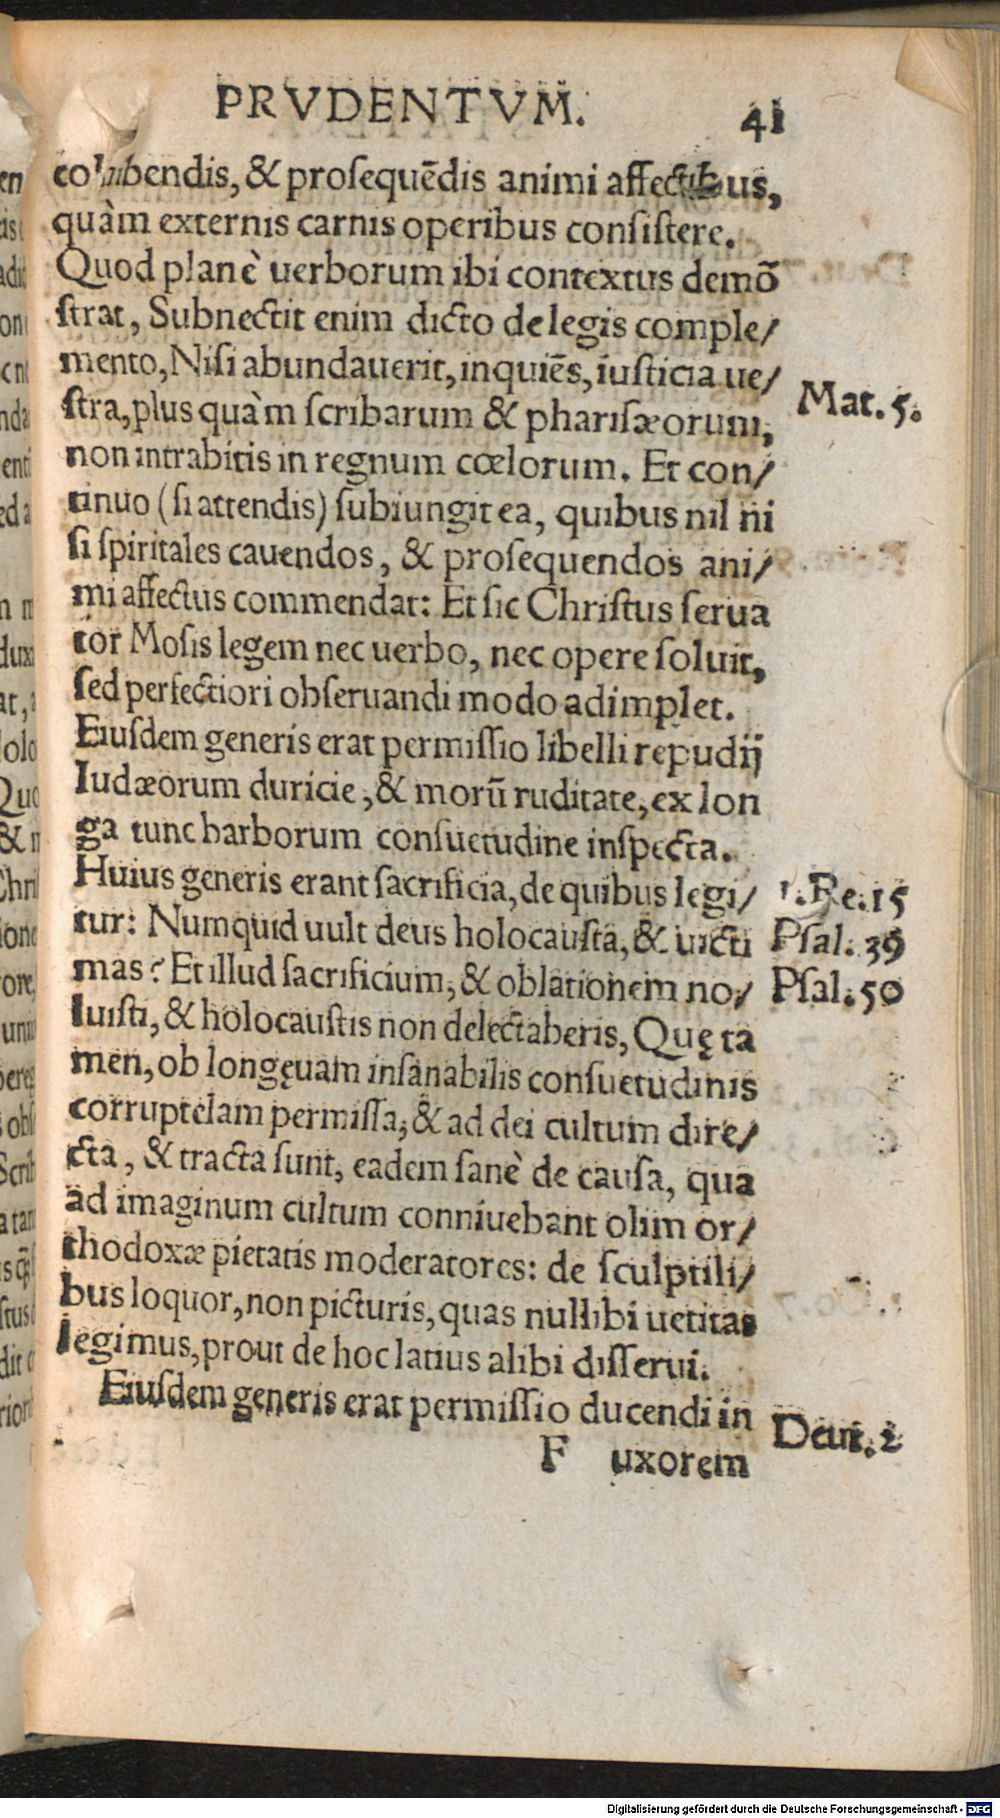 PRVDENTVM. 41
cohibendis, & proſequēdis animi affectibus,
quàm externis carnis operibus conſiſtere.
Quod planè uerborum ibi contextus demō
ſtrat, Subnectit enim dicto de legis comple/
mento, Niſi abundauerit, inquiēs, iuſticia ue/
ſtra, plus quàm ſcribarum & phariſæorum,
Mat. 5.
non intrabitis in regnum cœlorum. Et con/
tinuo (ſi attendis) ſubiungit ea, quibus nil ni
ſi ſpiritales cauendos, & proſequendos ani/
mi affectus commendat: Et ſic Chriſtus ſerua
tor Moſis legem nec uerbo, nec opere ſoluit,
ſed perfectiori obſeruandi modo adimplet.
Eiuſdem generis erat permiſſio libelli repudij
Iudæorum duricie, & morū ruditate, ex lon
ga tunc barborum conſuetudine inſpecta.
Huius generis erant ſacrificia, de quibus legi/
1. Re. 15
tur: Numquid uult deus holocauſta, & uicti
Pſal. 39
mas? Et illud ſacrificium, & oblationem no/
Pſal. 50
luiſti, & holocauſtis non delectaberis, Quę ta
men, ob longęuam inſanabilis conſuetudinis
corruptelam permiſſa, & ad dei cultum dire/
cta, & tracta ſunt, eadem ſanè de cauſa, qua
ad imaginum cultum conniuebant olim or/
thodoxæ pietatis moderatores: de ſculptili/
bus loquor, non picturis, quas nullibi uetitas
legimus, prout de hoc latius alibi diſſerui.
Eiuſdem generis erat permiſſio ducendi in
Deut. 2
F uxorem
Digitalisierung gefördert durch die Deutsche Forschungsgemeinschaft - DFG